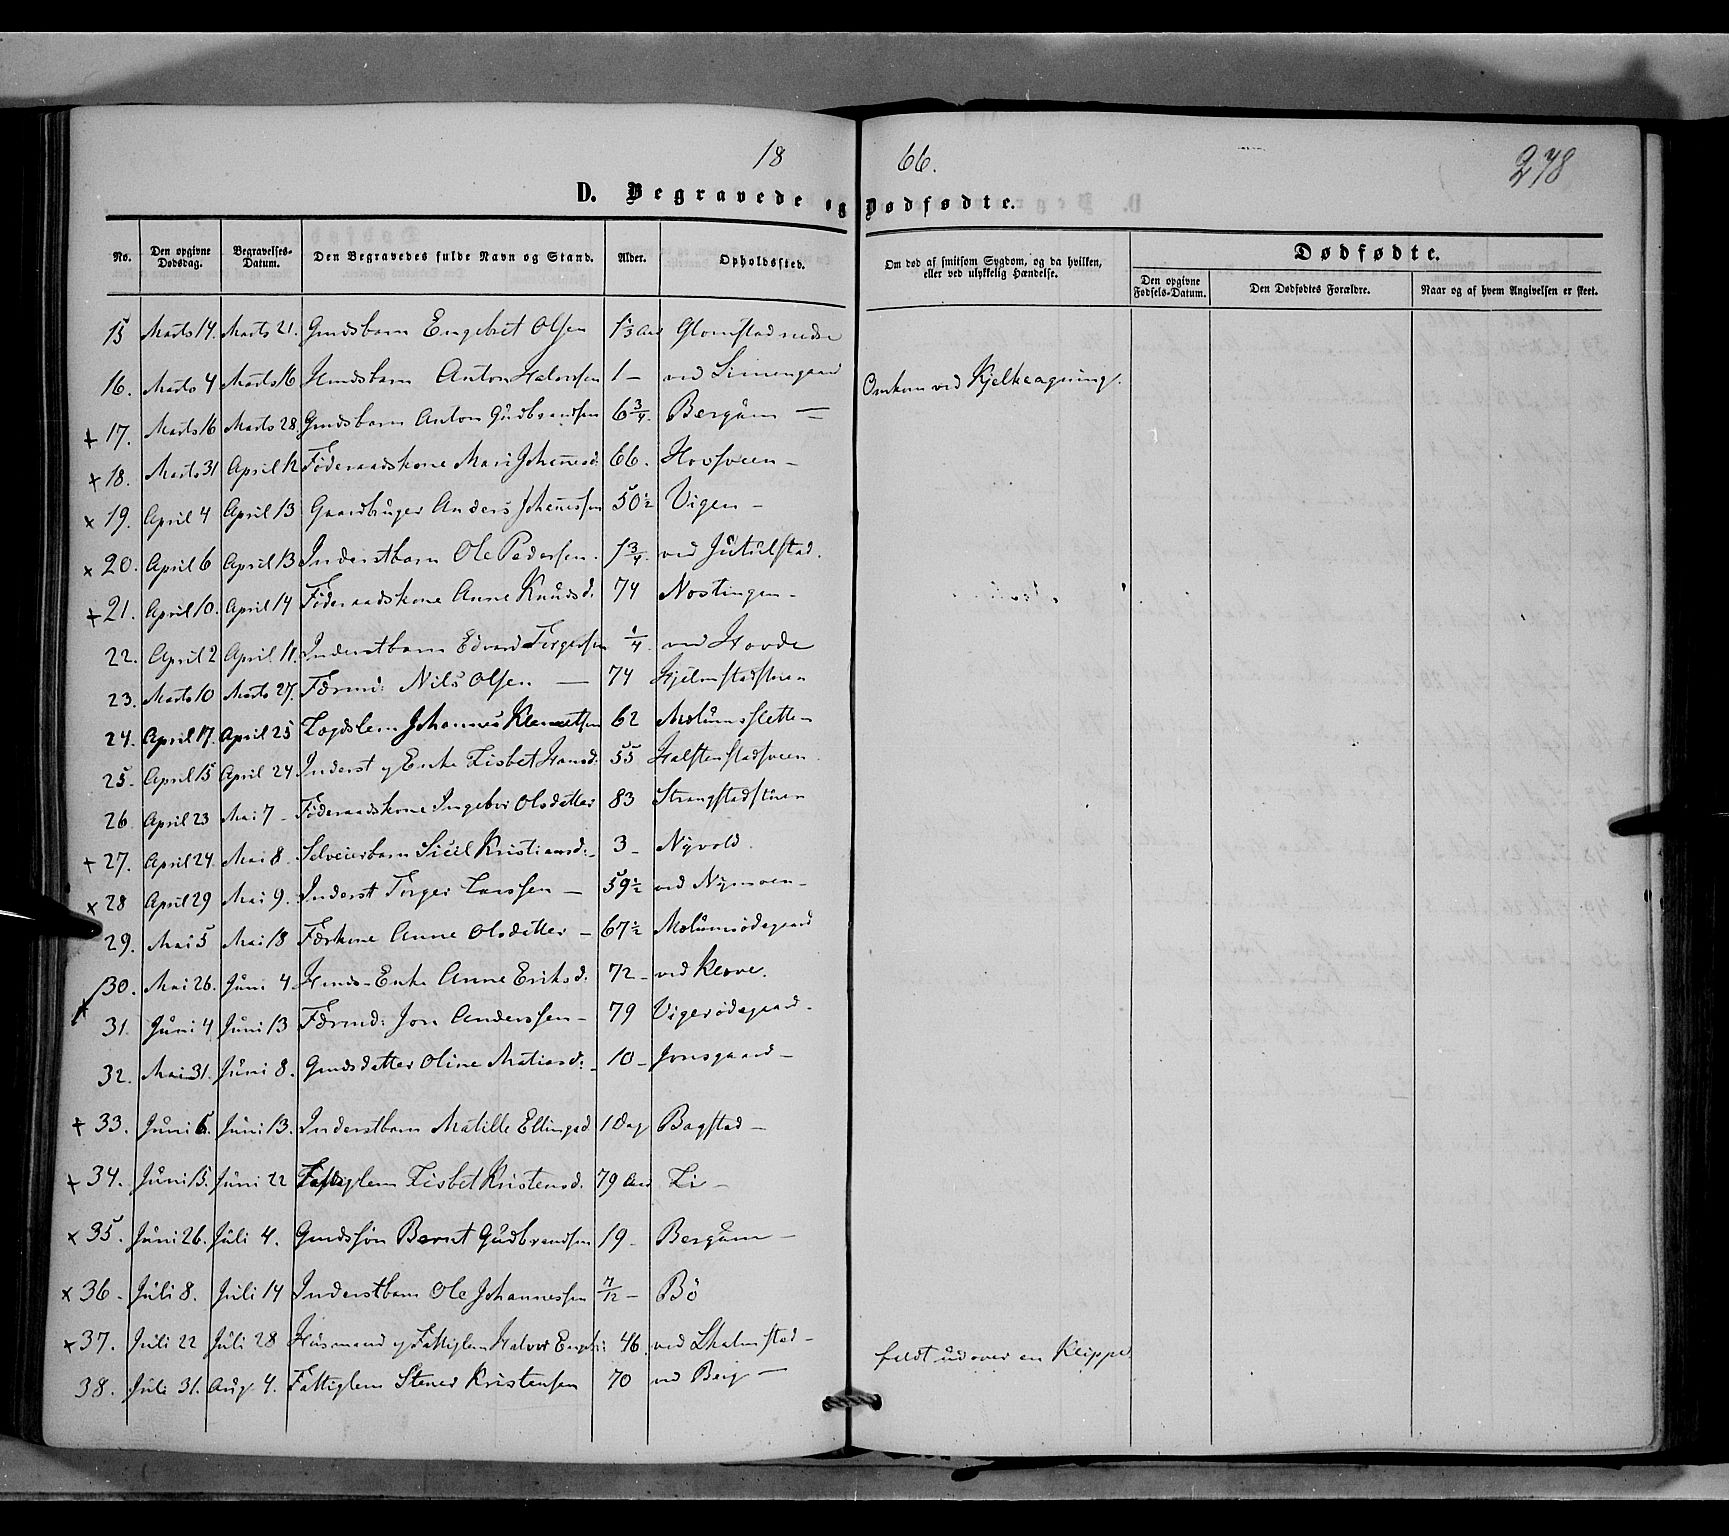 18 66.
278
D. Begravede og Dødfødte.
No. Den opgivne Dødsdag. Begravelses-Datum. Den Begravedes fulde Navn og Stand. Alder. Opholdssted. Om død af smitsom Sygdom, og da hvilken, eller ved ulykkelig Hændelse. Dødfødte.
Den opgivne Fødsels-Datum. Den Dødfødtes Forældre. Naar og af hvem Angivelsen er skeet.
15 Marts 14. Marts 21. Gmdsbarn Engebret Olsen 1 1/3 Aar Glomstad nedre
16. Marts 4 Marts 16 Hmdsbarn Anton Halvorsen 1 - ved Simengaard Omkom ved Kjelkeagning.
+ 17. Marts 16 Marts 28. Gmdsbarn Anton Gudbrandsen 6 3/4. Bergum -
+ 18. Marts 31 April 12 Føderaadskone Mari Johannesd. 66. Hovsveen -
x 19. April 4 April 13 Gaardbruger Anders Johannessen 50 1/2 Vigen -
x 20. April 6 April 13 Inderstbarn Ole Pedersen. 1 3/4. ved Jutulstad.
+ 21. April 10. April 14 Føderaadskone Anne Knudsd. 74 Nostingen -
22. April 2 April 11. Inderstbarn Edvard Torgersen 1/4. ved Hovde
23. Marts 10 Marts 27. Færmd: Nils Olsen - 74 Hjelmstadstuen
24. April 17. April 25 Lægdslem Johannes Klemetsen 62 Molumsletten
25. April 15 April 24 Inderst og Enke Lisbet Hansd: 55 Halstenstadsveen.
26. April 23 Mai 7 - Føderaadskone Ingebor Olsdatter 83 Strangstadstuen
+ 27. April 24. Mai 8. Selveierbarn Sicil Kristiansd: - 3 - Nyvold.
x 28 April 29 Mai 9. Inderst Torger Larssen - 59 1/2 ved Nymoen -
29. Mai 5 Mai 18 Færkone Anne Olsdatter - 67 1/2 Molumsødegaard
30. Mai 26. Juni 4. Hmds-Enke Anne Eriksd. 72 - ved Klove.
x 31. Juni 4 Juni 13 Færmd: Jon Anderssen - 79 Vigerødegaard.
32. Mai 31. Juni 8. Gmdsdatter Oline Matiasd: - 10 - Jonsgaard -
+ 33. Juni 6. Juni 13. Inderstbarn Matille Ellingsd 1 Dag Bagstad -
+ 34. Juni 15. Juni 22 Fattiglem Lisbet Kristensd. 79 Aar Li -
x 35. Juni 26. Juli 4. Gmdssøn Bernt Gudbrandsen 19 - Bergum -
x 36. Juli 8. Juli 14 Inderstbarn Ole Johannessen 7/12 - Bö
x 37. Juli 22 Juli 28 Husmand og Fattiglem Halvor Engebr: 46. ved Skalmstad - faldt udover en Klippe.
38. Juli 31. Aug. 4. Fattiglem Stener Kristensen 70 ved Berg -